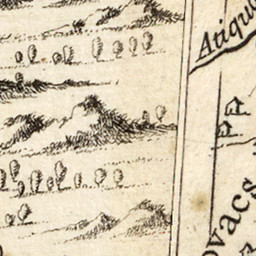 Atiqu
ovacs